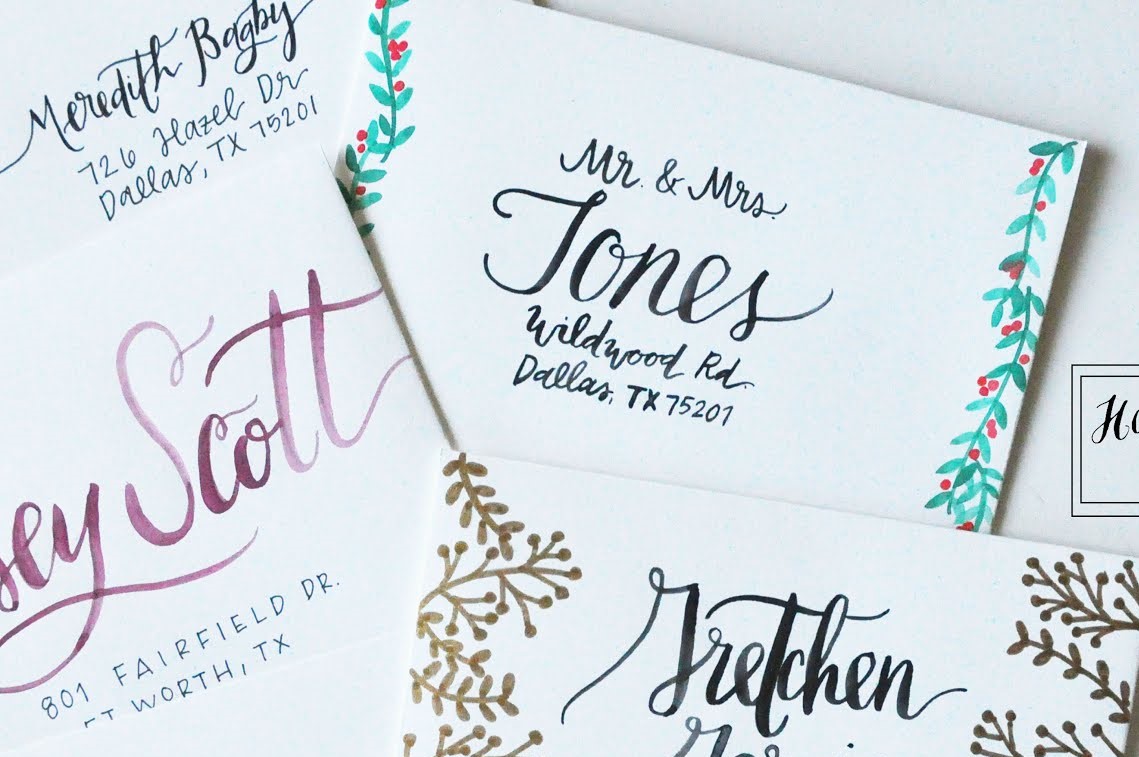 Meredith Bagby
726 Hazel Dr
Dallas, TX 75201
Mr. & Mrs.
Jones
Wildwood Rd.
Dallas, TX 75201
Scott
801 FAIRFIELD DR.
FT WORTH, TX
Gretchen